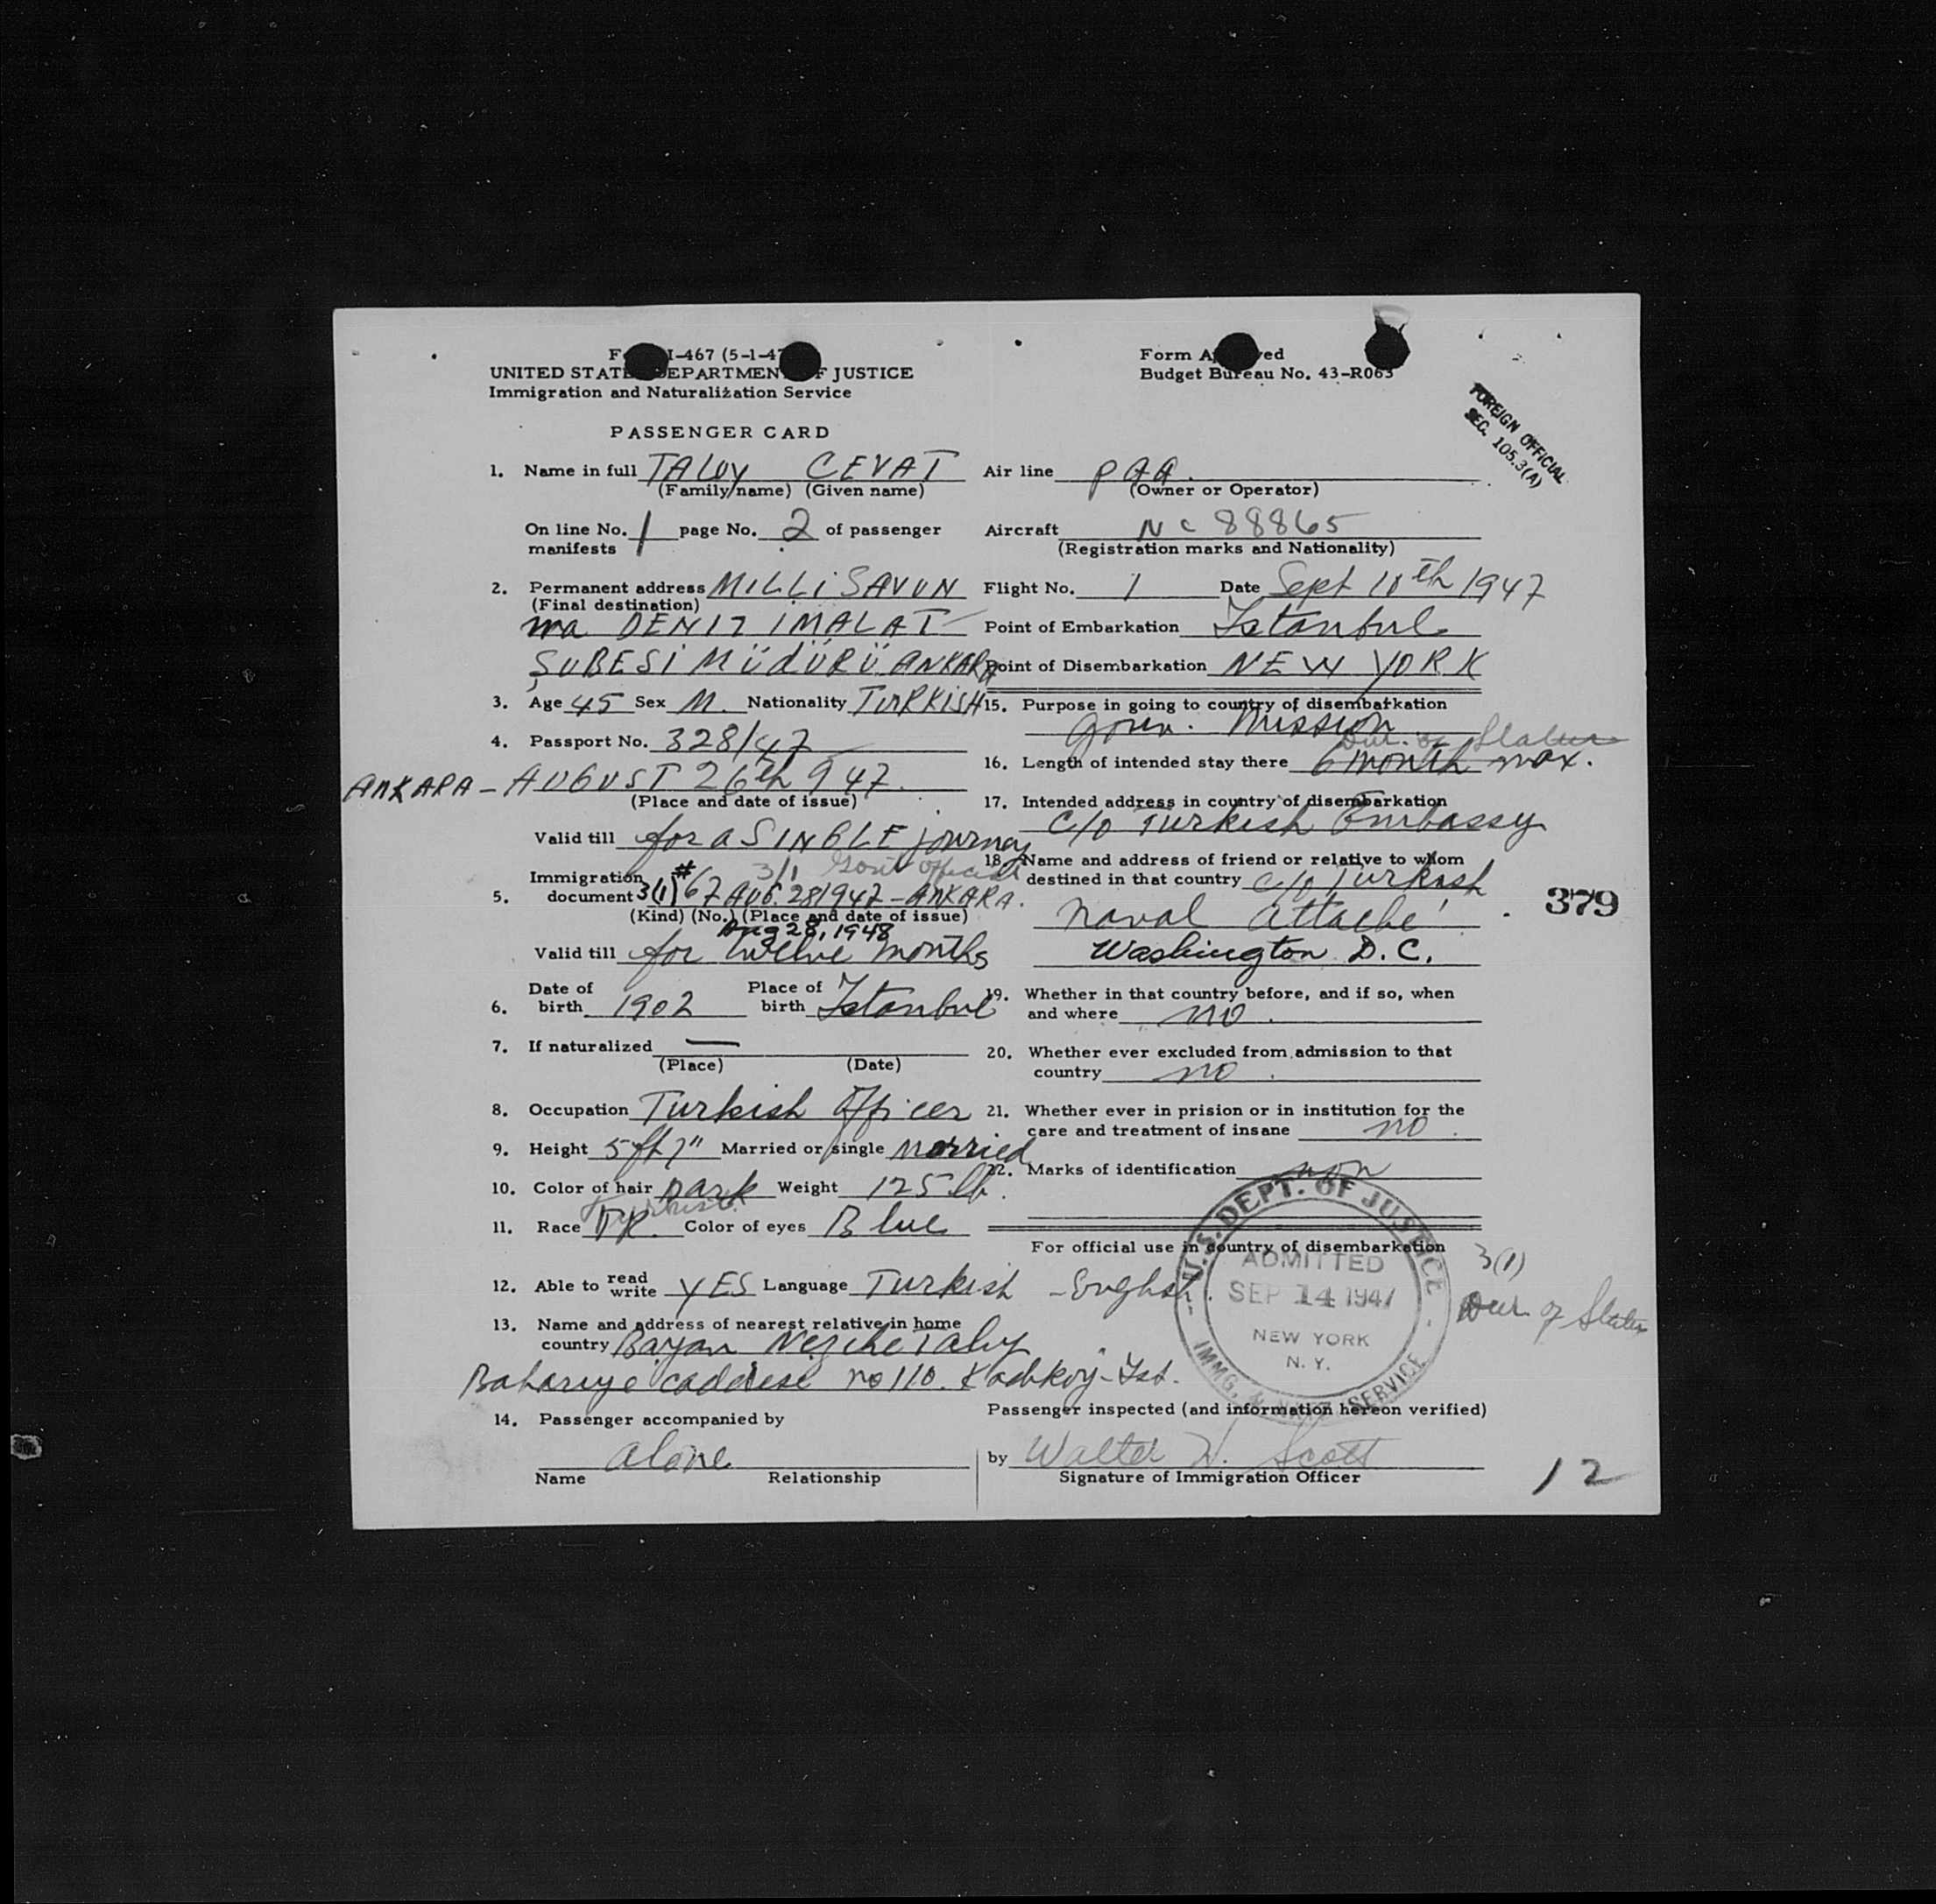 Form I-467 (5-1-47)
UNITED STATES DEPARTMENT OF JUSTICE
Immigration and Naturalization Service
Form Approved
Budget Bureau No. 43-R063
FOREIGN OFFICIAL
SEC. 105.3(A)
PASSENGER CARD
1. Name in full TALUY CEVAT
(Family name) (Given name)
On line No. 1 page No. 2 of passenger
manifests
2. Permanent address MILLi SAVUN
(Final destination)
ma DENIZ IMALAT
ŞUBESi MÜDÜRÜ ANKARA
3. Age 45 Sex M. Nationality TURKISH
4. Passport No. 328/47
ANKARA - AUGUST 26th 947.
(Place and date of issue)
Valid till for a SINGLE journey
3/1 Govt Official
5. Immigration document 3(1) #67 AUG. 28 1947 - ANKARA.
(Kind) (No.) (Place and date of issue)
Aug 28, 1948
Valid till for twelve months
6. Date of birth 1902 Place of birth Istanbul
7. If naturalized —
(Place) (Date)
8. Occupation Turkish Officer
9. Height 5 ft 7" Married or single married
10. Color of hair Dark Weight 125 lb.
Turkish
11. Race TR. Color of eyes Blue
12. Able to read write YES Language Turkish - English.
13. Name and address of nearest relative in home
country Bayan Nezihe Taluy
Bahariye caddesi no 110. Kadikoy - Ist.
14. Passenger accompanied by
alone
Name Relationship
Air line PAA.
(Owner or Operator)
Aircraft NC 88865
(Registration marks and Nationality)
Flight No. 1 Date Sept 10th 1947
Point of Embarkation Istanbul
Point of Disembarkation NEW YORK
15. Purpose in going to country of disembarkation
Gouv. Mission
Dur. of Status
16. Length of intended stay there 6 month max.
17. Intended address in country of disembarkation
c/o Turkish Embassy
18. Name and address of friend or relative to whom
destined in that country c/o Turkish
Naval Attache
Washington D.C.
379
19. Whether in that country before, and if so, when
and where no.
20. Whether ever excluded from admission to that
country no.
21. Whether ever in prision or in institution for the
care and treatment of insane no.
22. Marks of identification non
For official use in country of disembarkation
U.S. DEPT. OF JUSTICE
ADMITTED
SEP 14 1947
NEW YORK
N. Y.
IMMG. & NATZ. SERVICE
3(1)
Dur of Status
Passenger inspected (and information hereon verified)
by Walter W. Scott
Signature of Immigration Officer
12